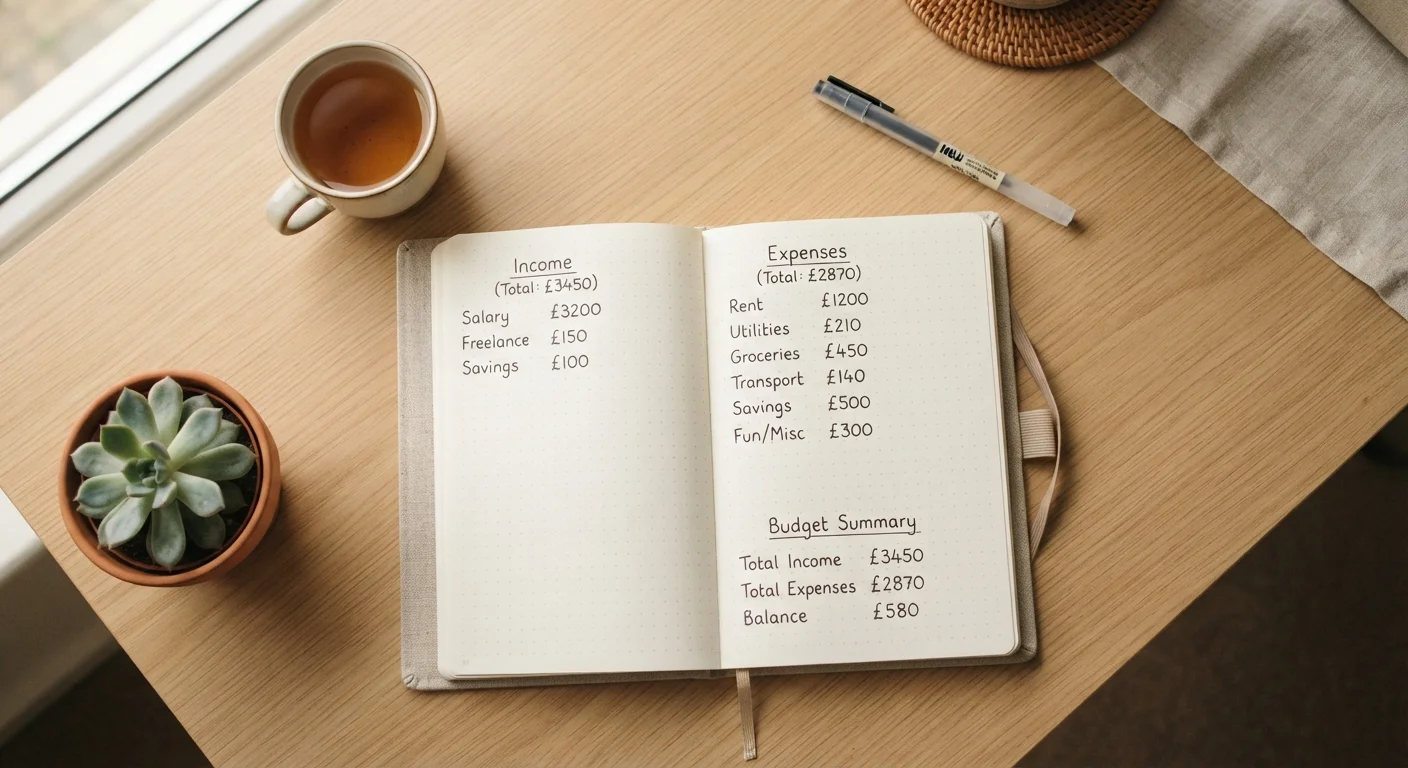 Income
(Total: £3450)
Salary £3200
Freelance £150
Savings £100
Expenses
(Total: £2870)
Rent £1200
Utilities £210
Groceries £450
Transport £140
Savings £500
Fun/Misc £300
Budget Summary
Total Income £3450
Total Expenses £2870
Balance £580